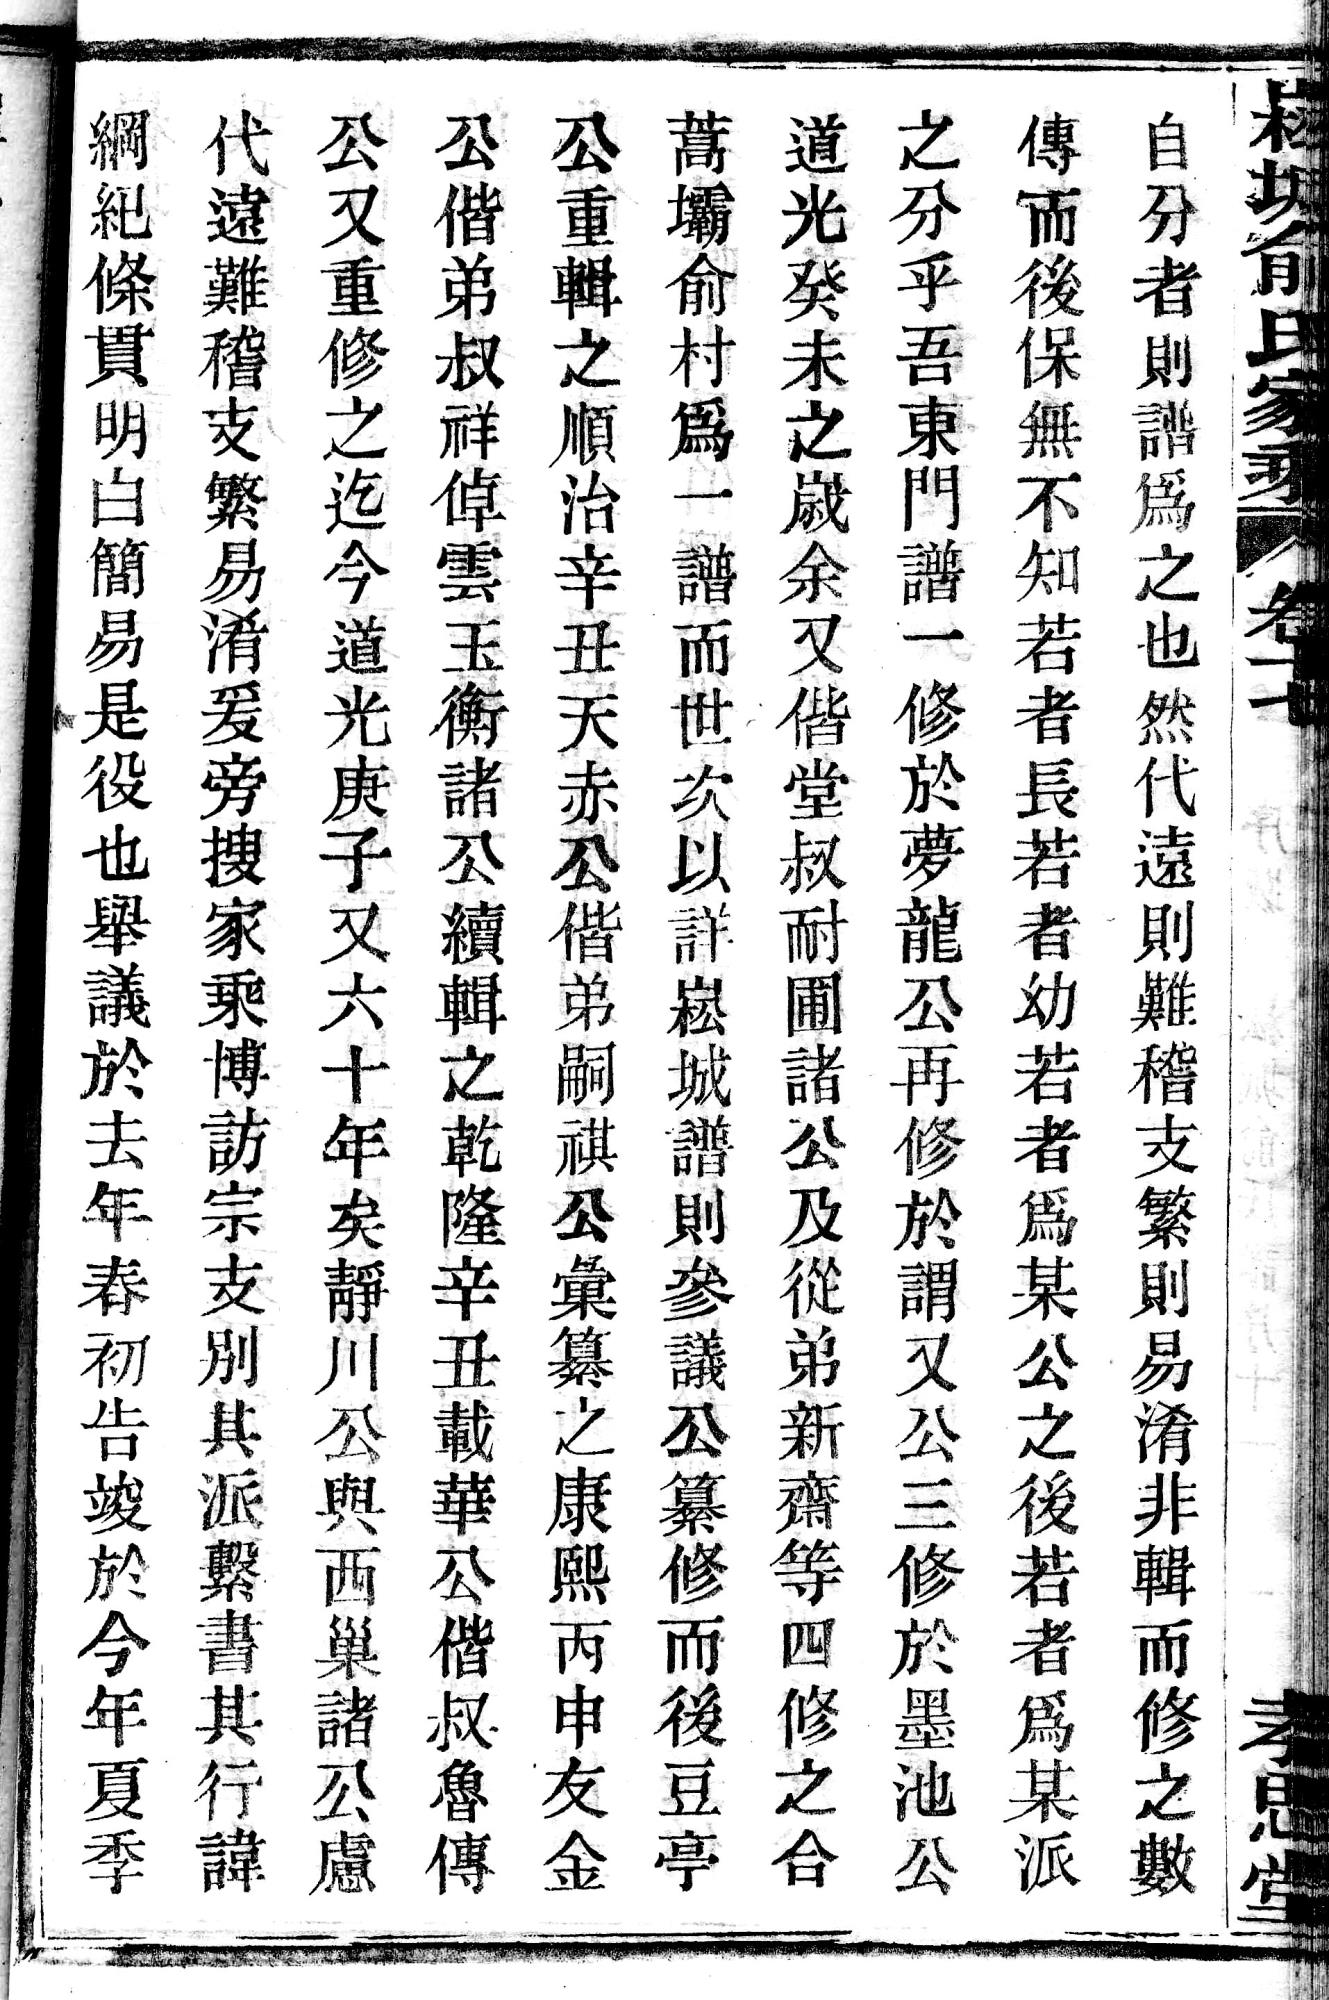 崧城俞氏家乘 卷十七 孝思堂
自分者則譜爲之也然代遠則難稽支繁則易淆非輯而修之數
傳而後保無不知若者長若者幼若者爲某公之後若者爲某派
之分乎吾東門譜一修於夢龍公再修於謂又公三修於墨池公
道光癸未之歲余又偕堂叔耐圃諸公及從弟新齋等四修之合
蒿壩俞村爲一譜而世次以詳崧城譜則參議公纂修而後豆亭
公重輯之順治辛丑天赤公偕弟嗣祺公彙纂之康熙丙申友金
公偕弟叔祥倬雲玉衡諸公續輯之乾隆辛丑載華公偕叔魯傳
公又重修之迄今道光庚子又六十年矣靜川公與西巢諸公慮
代遠難稽支繁易淆爰旁搜家乘博訪宗支別其派繫書其行諱
綱紀條貫明白簡易是役也舉議於去年春初告竣於今年夏季